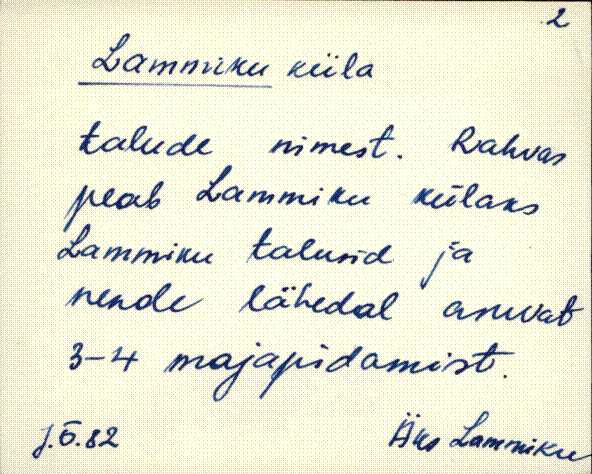 2
Lammiku küla
talude nimest. Rahvas
peab Lammiku külaks
Lammiku talusid ja
nende lähedal asuvat
3-4 majapidamist.
J.Õ.82 Äks Lammiku